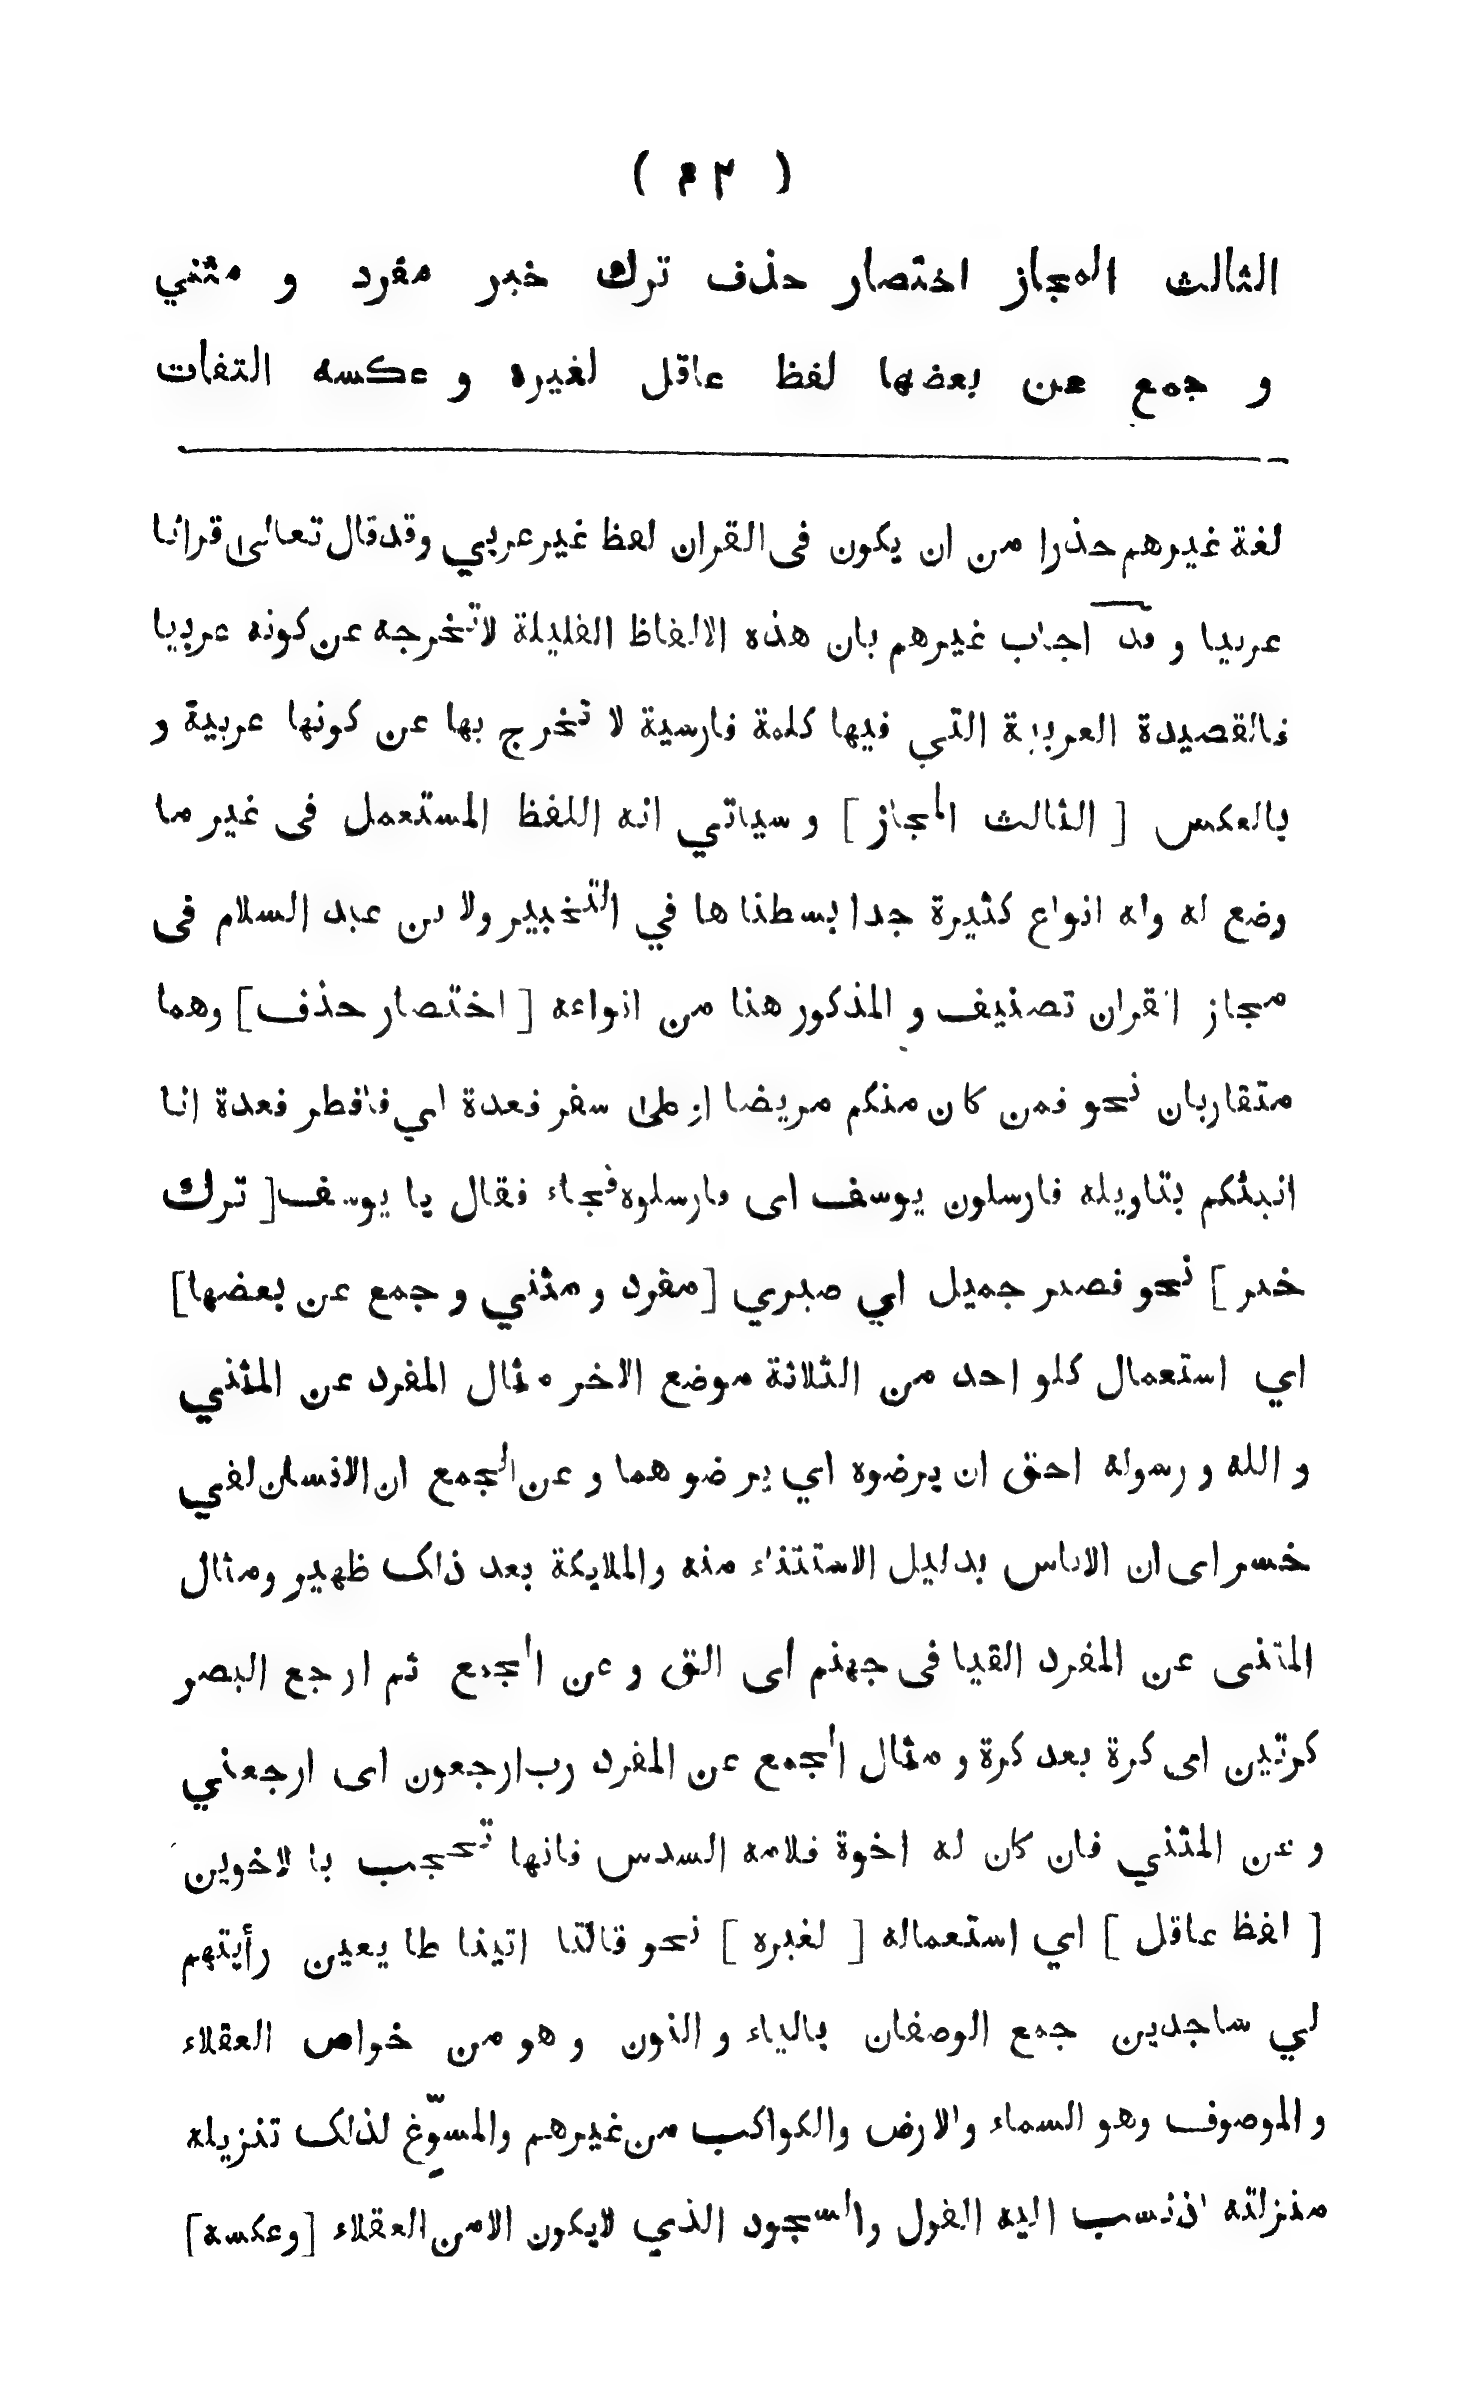 ( ٢٤ )
الثالث المجاز اختصار حذف ترك خبر مفرد و مثني
و جمع عن بعضها لفظ عاقل لغيره و عكسه التفات
لغة غيرهم حذرا من ان يكون فى القران لفظ غير عربي وقد قال تعالى قرانا
عربيا و قد اجاب غيرهم بان هذه الالفاظ القليلة لاتخرجه عن كونه عربيا
فالقصيدة العربية التي فيها كلمة فارسية لا تخرج بها عن كونها عربية و
بالعكس [ الثالث المجاز ] و سياتي انه اللفظ المستعمل فى غير ما
وضع له وله انواع كثيرة جدا بسطنا ها في التخبير ولا بن عبد السلام فى
مجاز القران تصنيف و المذكور هنا من انواعه [ اختصار حذف ] وهما
متقاربان نحو فمن كان منكم مريضا او على سفر فعدة اي فافطر فعدة انا
انبئكم بتاويله فارسلون يوسف اى فارسلوه فجاء فقال يا يوسف [ ترك
خبر ] نحو فصبر جميل اي صبري [ مفرد و مثني و جمع عن بعضها ]
اي استعمال كلو احد من الثلاثة موضع الاخر مثال المفرد عن المثني
و الله و رسوله احق ان يرضوه اي ير ضو هما و عن الجمع ان الانسان لفي
خسر اى ان الاناس بدليل الاستثناء منه والملايكة بعد ذلك ظهير ومثال
المثنى عن المفرد القيا فى جهنم اى الق و عن الجمع ثم ارجع البصر
كرتين اى كرة بعد كرة و مثال الجمع عن المفرد رب ارجعون اى ارجعني
و عن المثني فان كان له اخوة فلامه السدس فانها تحجب با لاخوين
[ لفظ عاقل ] اي استعماله [ لغيره ] نحو قالتا اتينا طا يعين رأيتهم
لي ساجدين جمع الوصفان بالياء و النون و هو من خواص العقلاء
و الموصوف وهو السماء والارض والكواكب من غيرهم والمسوّغ لذلك تنزيله
منزلته اذ نسب اليه القول والسجود الذي لايكون الامن العقلاء [ وعكسه ]